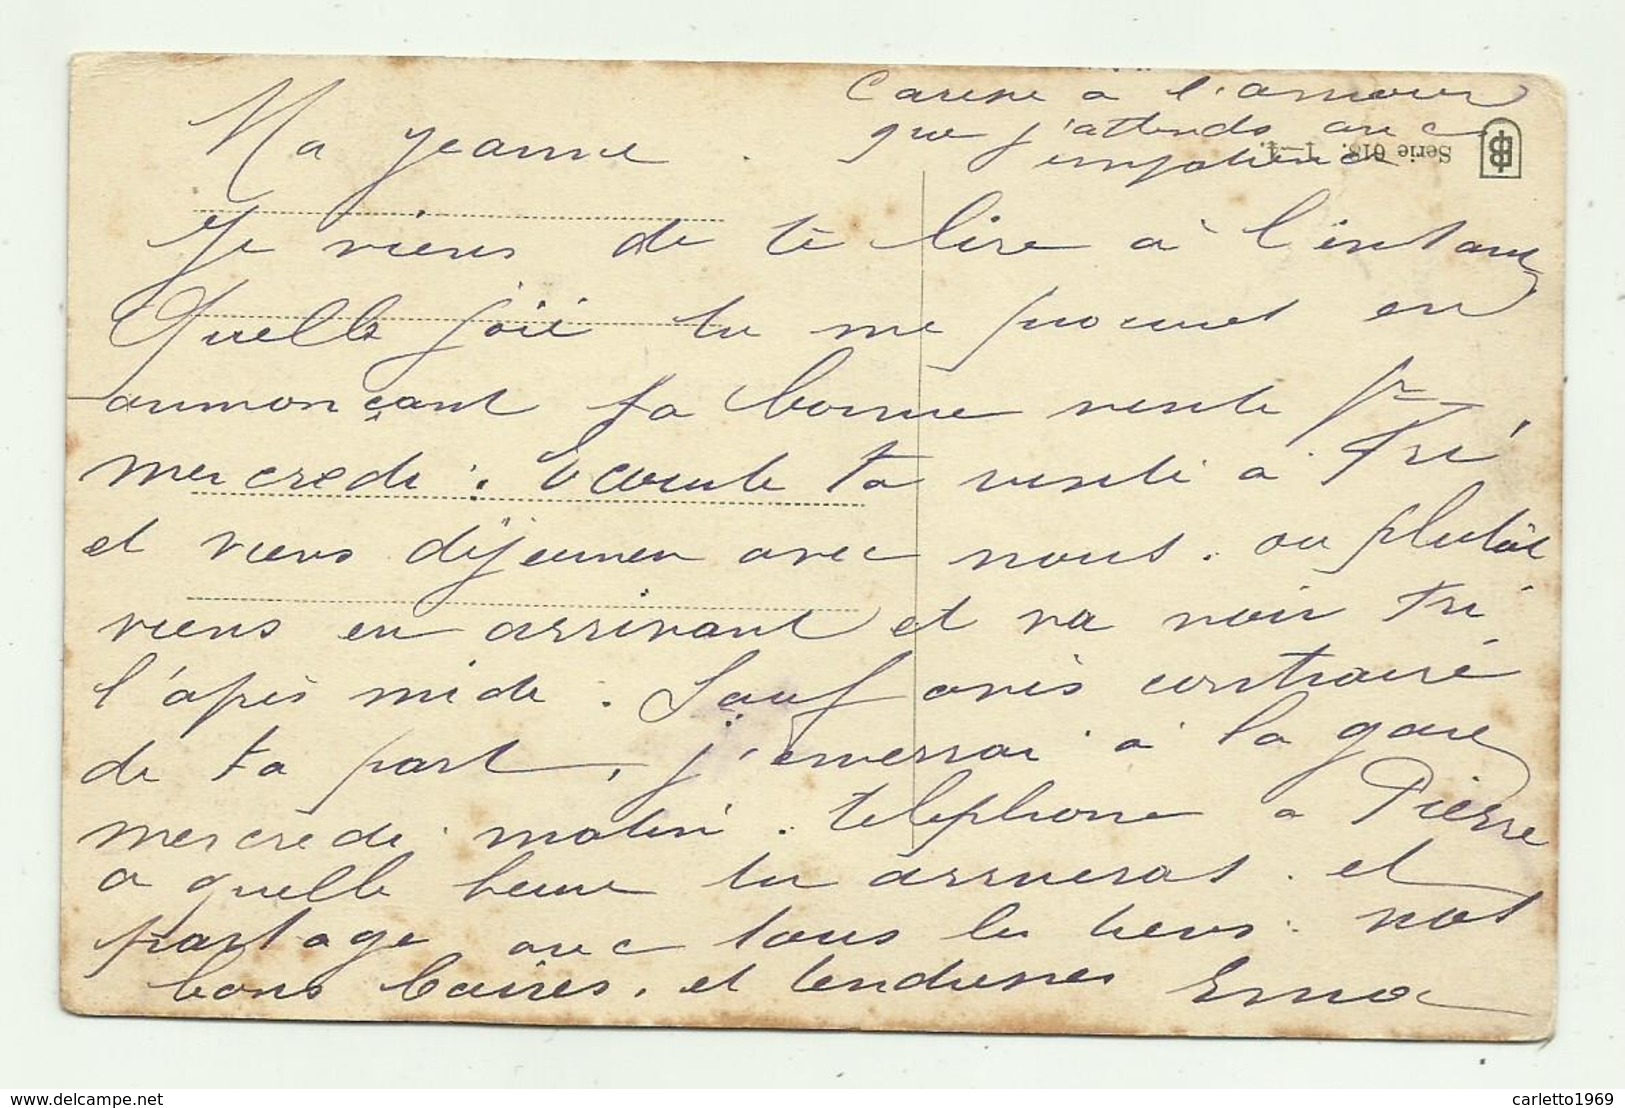 Caresse a l'amour
que j'attends avec
impatience
Serie 618. 1-4.
Ma Jeanne.
Je viens de te lire à l'instant
Quelle joie tu me procures en
annonçant ta bonne visite pr
mercredi. Écourte ta visite à Tri
et viens déjeuner avec nous. ou plutôt
viens en arrivant et va voir Tri
l'après midi. Sauf avis contraire
de ta part, j'enverrai à la gare
mercredi matin. telephone a Pierre
a quelle heure tu arriveras. et
partage avec tous les tiens. nos
bons baisers. et tendresses Erna
carletto1969
delcampe.net